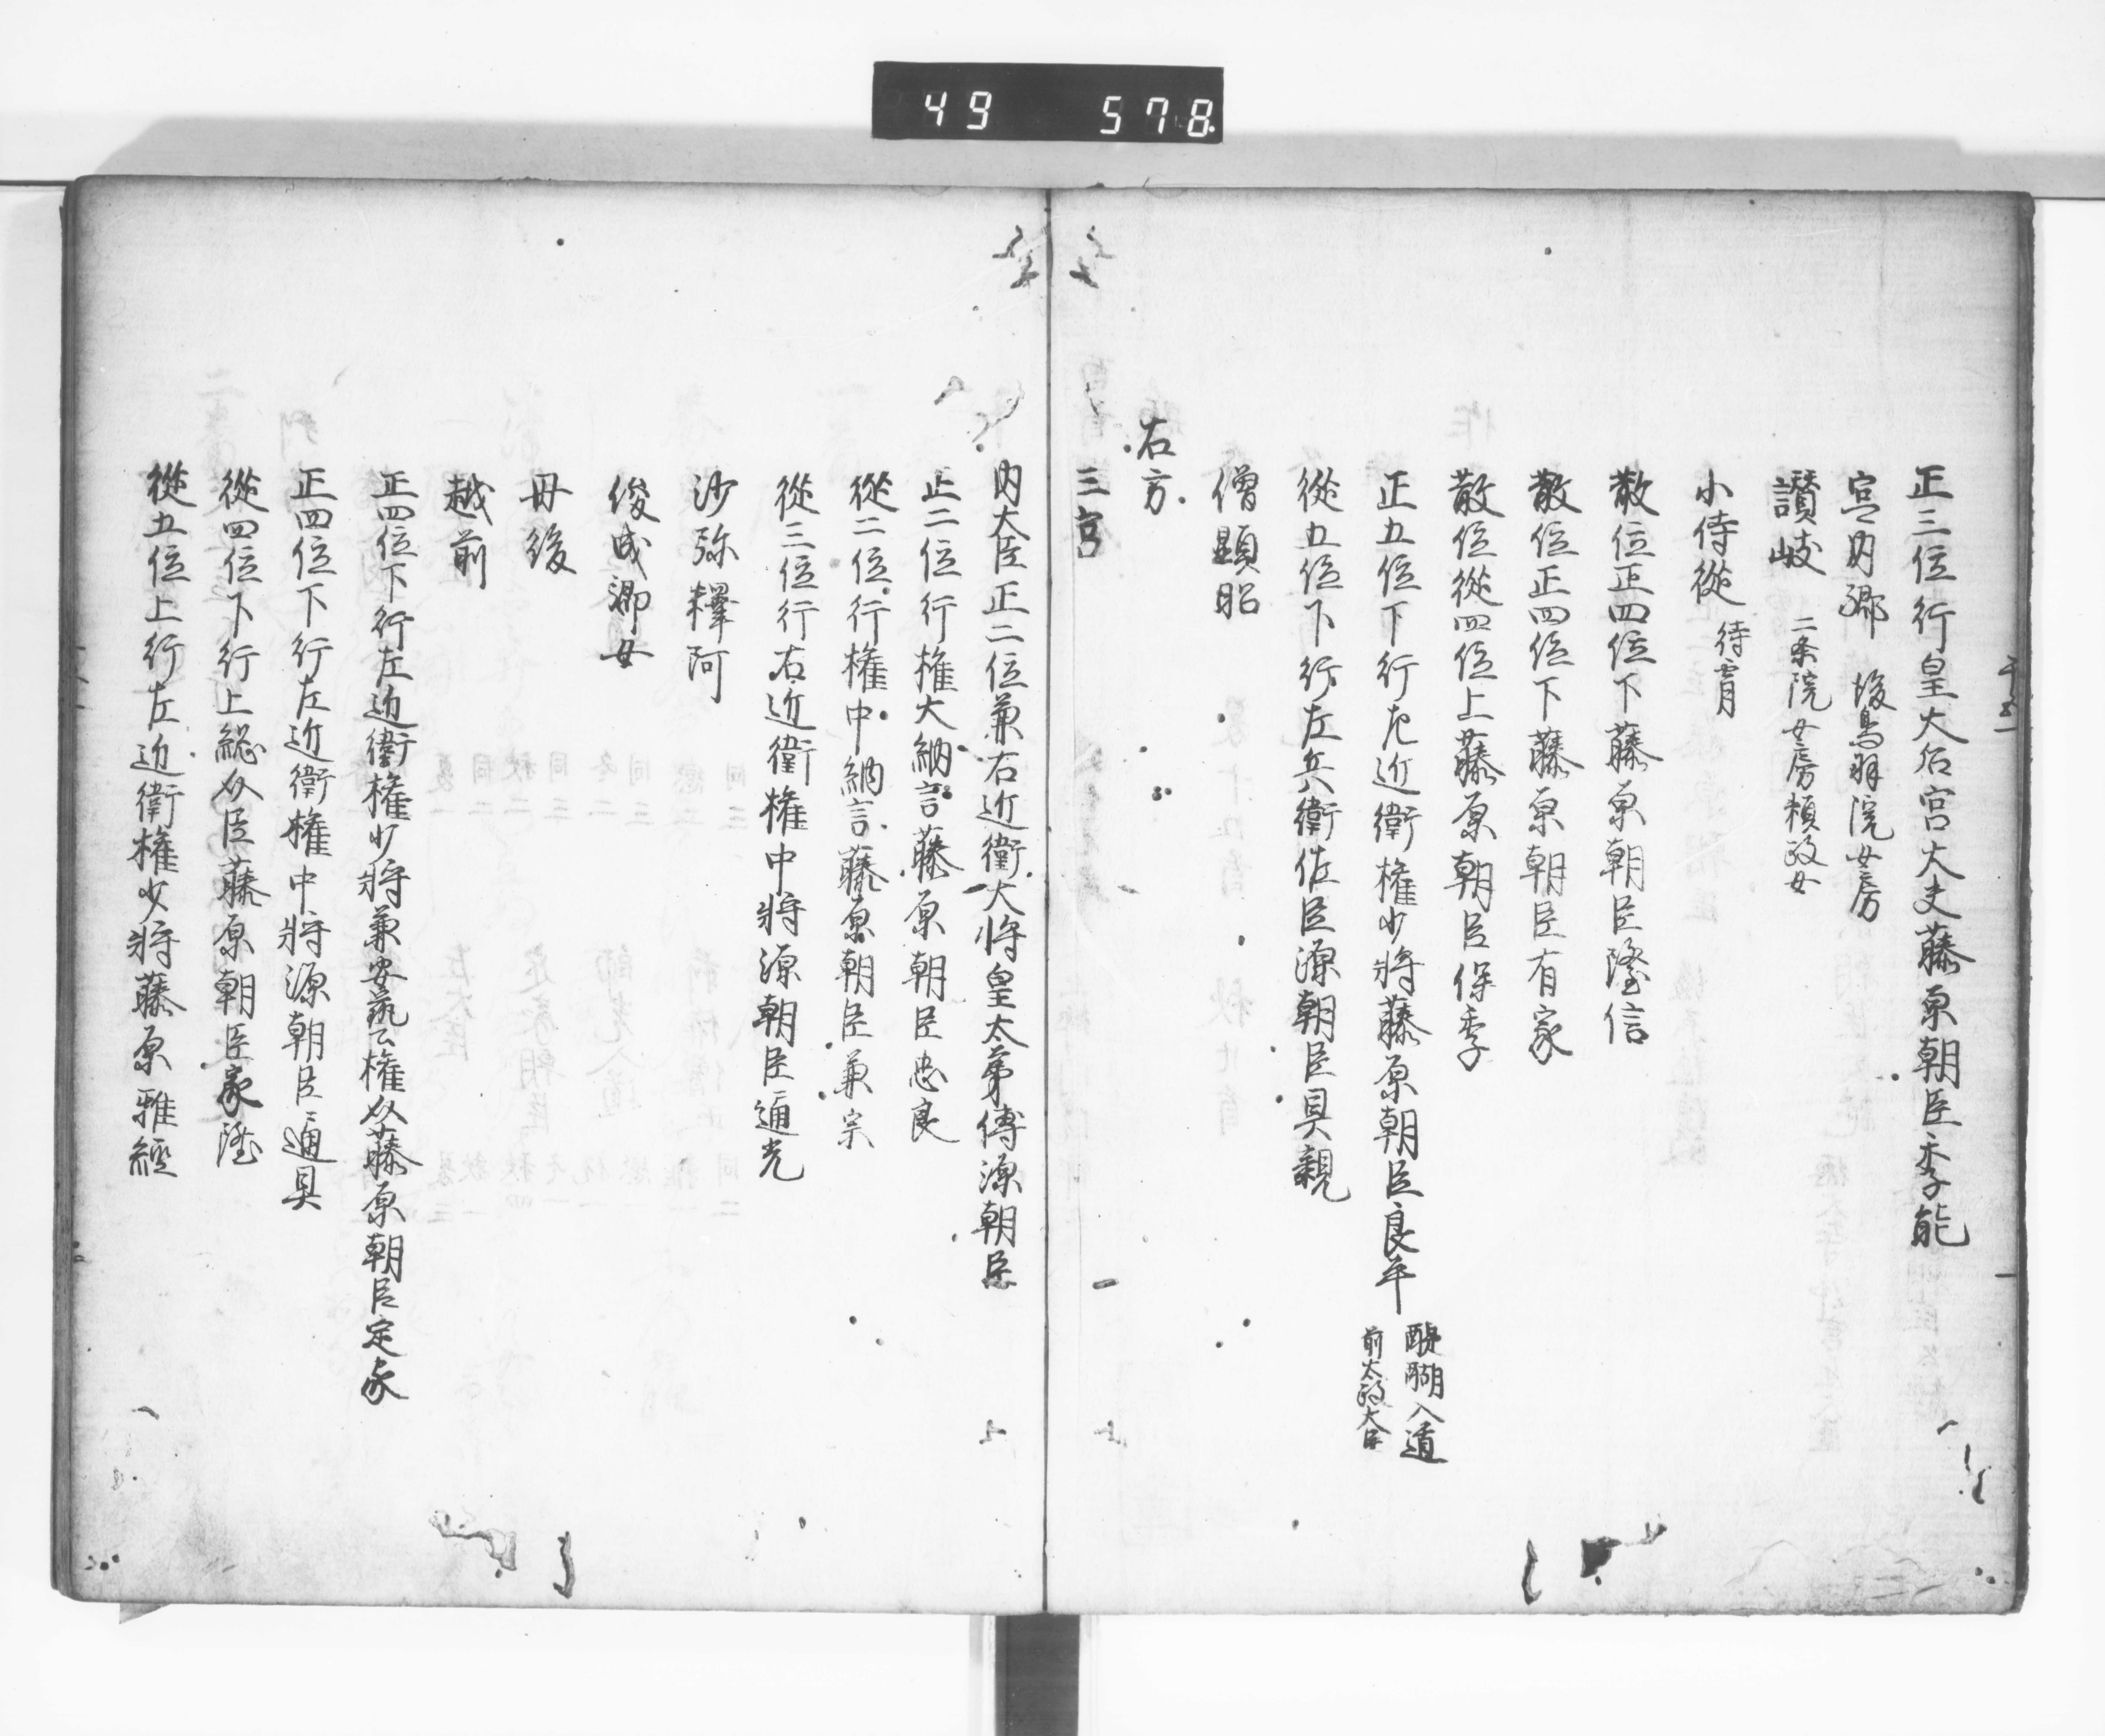 49 578
正三位行皇大后宮大夫藤原朝臣季能
宮内卿 後鳥羽院女房
讃岐 二条院女房頼政女
小侍従 待宵
散位正四位下藤原朝臣隆信
散位正四位下藤原朝臣有家
散位從四位上藤原朝臣保季
正五位下行左近衛権少将藤原朝臣良平 醍醐入道
前太政大臣
從五位下行左兵衛佐臣源朝臣具親
僧顕昭
右方
三宮
内大臣正二位兼右近衛大将皇太弟傅源朝臣
正二位行権大納言藤原朝臣忠良
從二位行権中納言藤原朝臣兼宗
從三位行右近衛権中将源朝臣通光
沙弥釋阿
俊成卿女
丹後
越前
正四位下行左近衛権少将兼安藝権介藤原朝臣定家
正四位下行左近衛権中将源朝臣通具
從四位下行上総介臣藤原朝臣家隆
從五位上行左近衛権少将藤原雅經